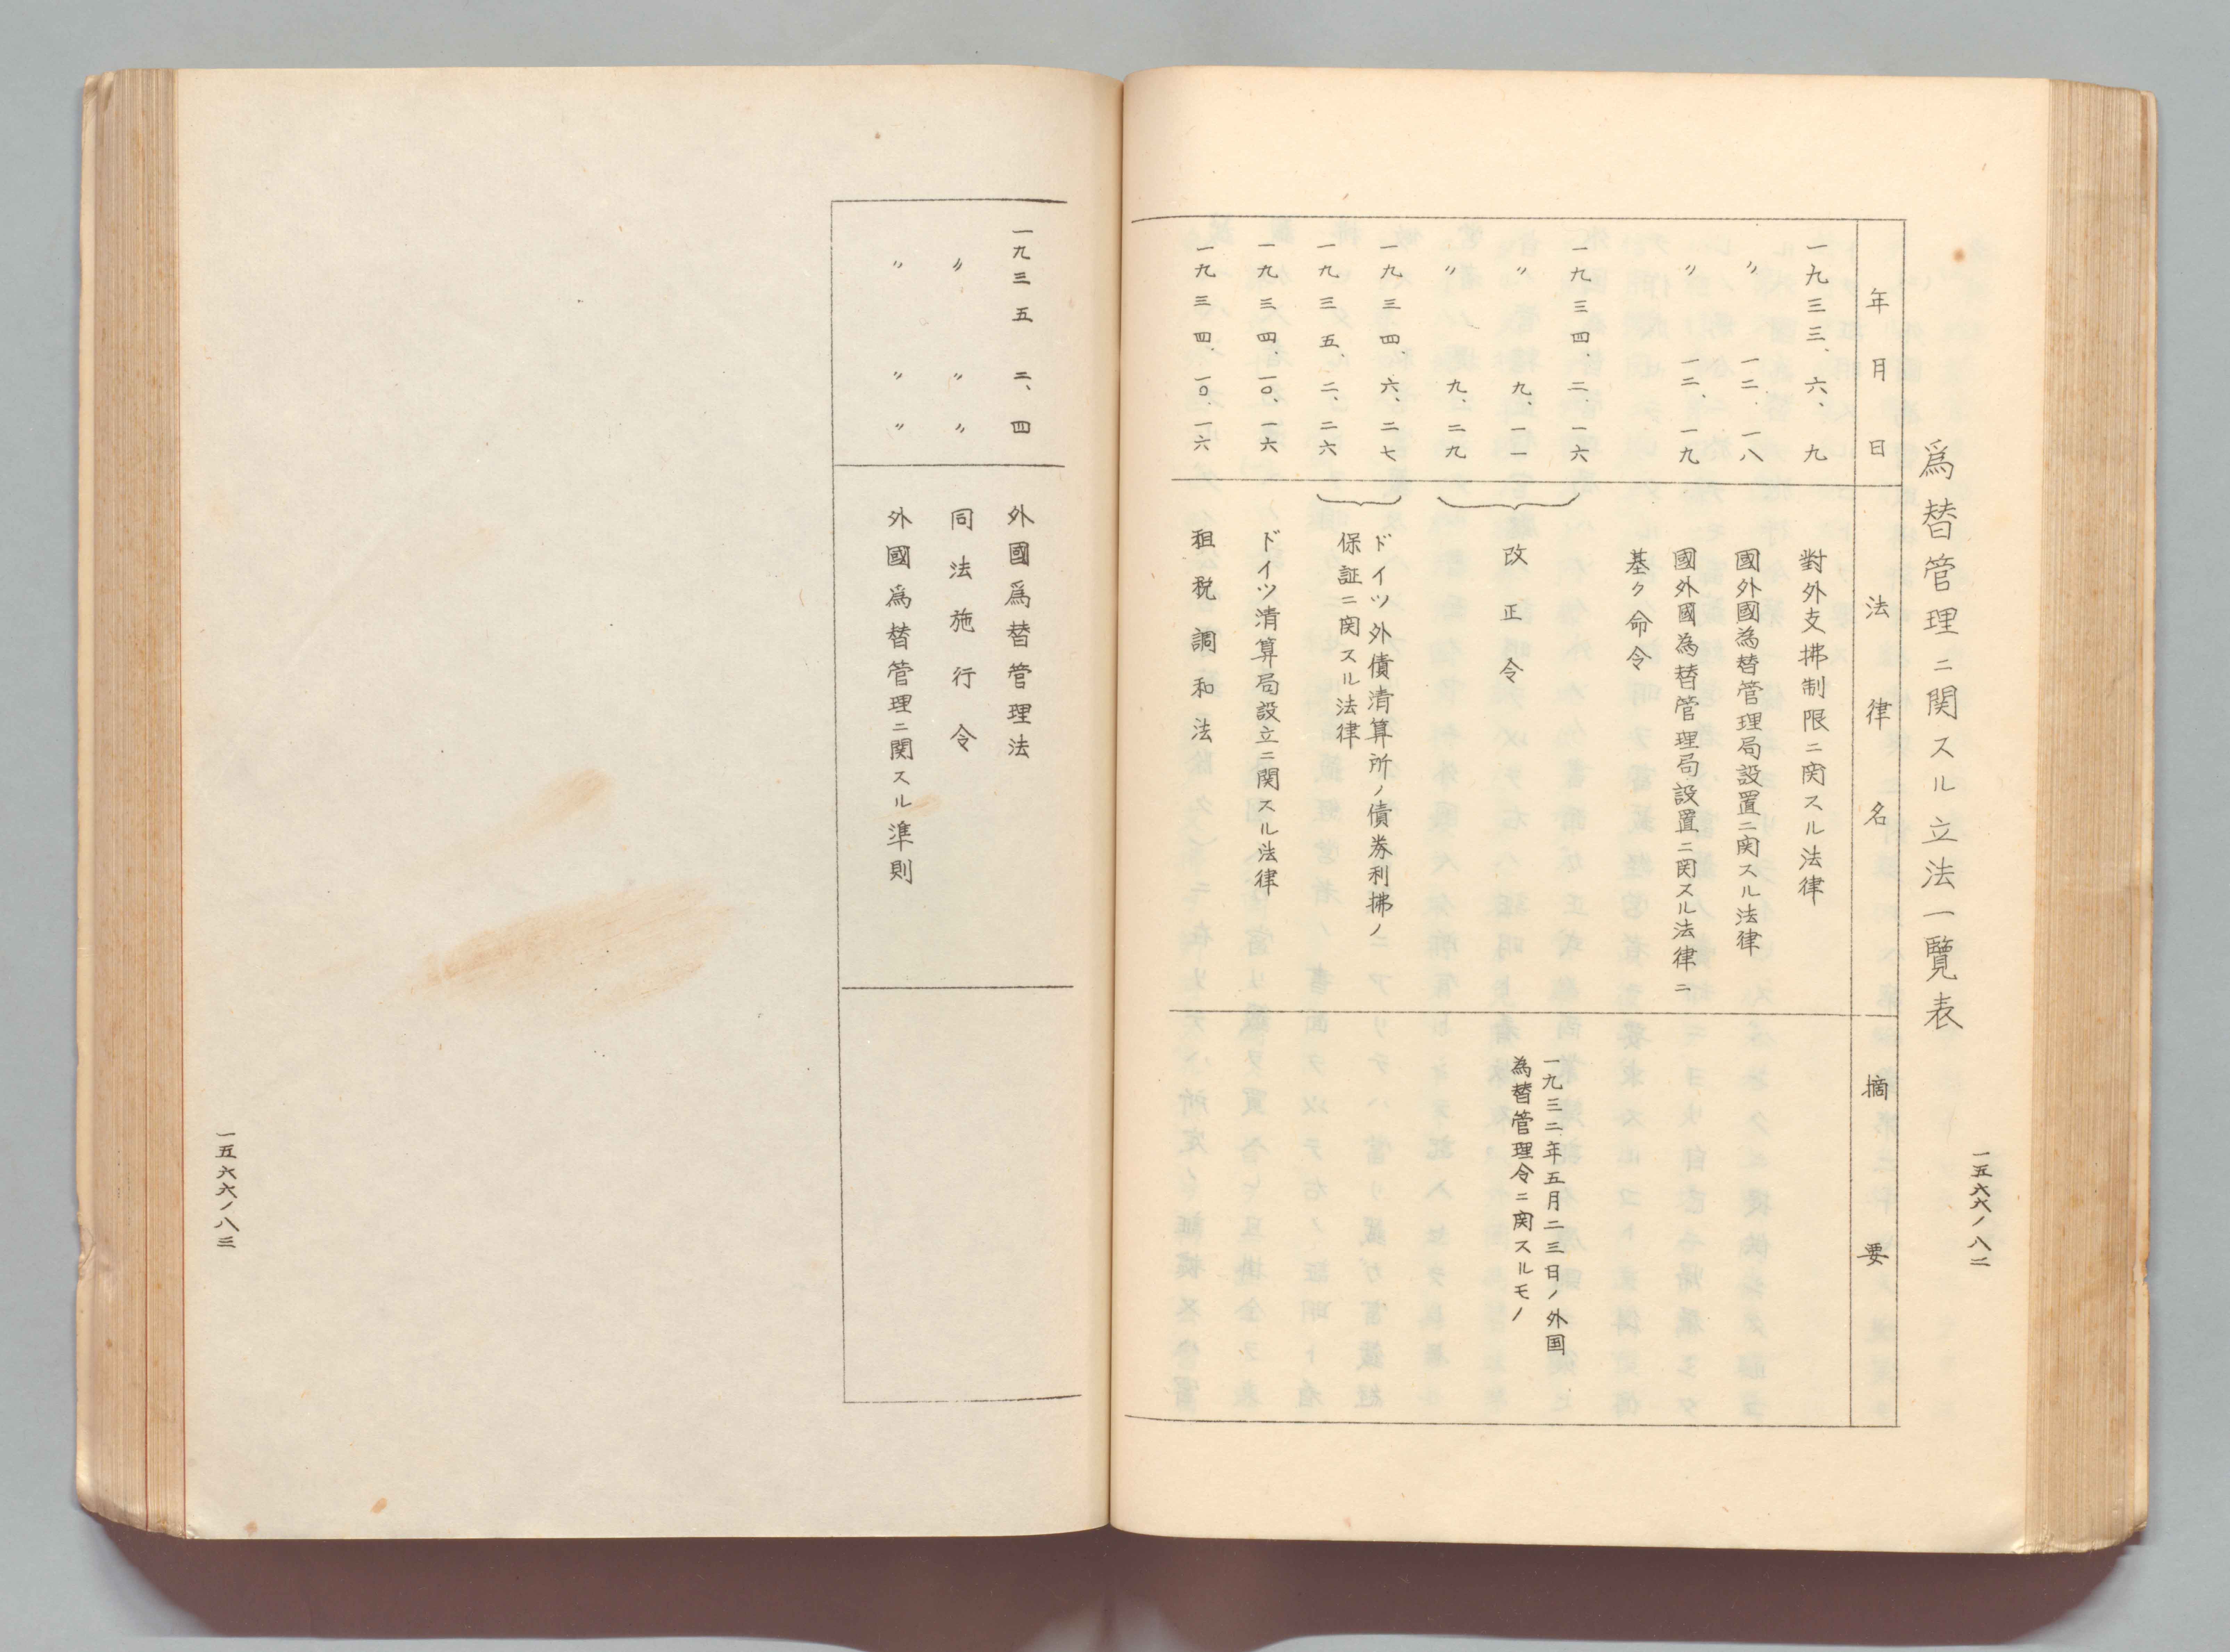 為替管理ニ関スル立法一覽表
年月日
法律名
摘要
一九三三、六、九
對外支拂制限ニ関スル法律
〃 一二、一八
國外國為替管理局設置ニ関スル法律
〃 一二、一九
國外國為替管理局設置ニ関スル法律ニ
基ク命令
一九三四、二、一六
〃 九、一一
〃 九、二九
改正令
一九三二年五月二三日ノ外国
為替管理令ニ関スルモノ
一九三四、六、二七
一九三五、二、二六
ドイツ外債清算所ノ債券利拂ノ
保証ニ関スル法律
一九三四、一〇、一六
ドイツ清算局設立ニ関スル法律
一九三四、一〇、一六
租税調和法
一五六六ノ八二
一九三五 二、四
外國爲替管理法
〃 〃 〃
同法施行令
〃 〃 〃
外國爲替管理ニ関スル準則
一五六六ノ八三